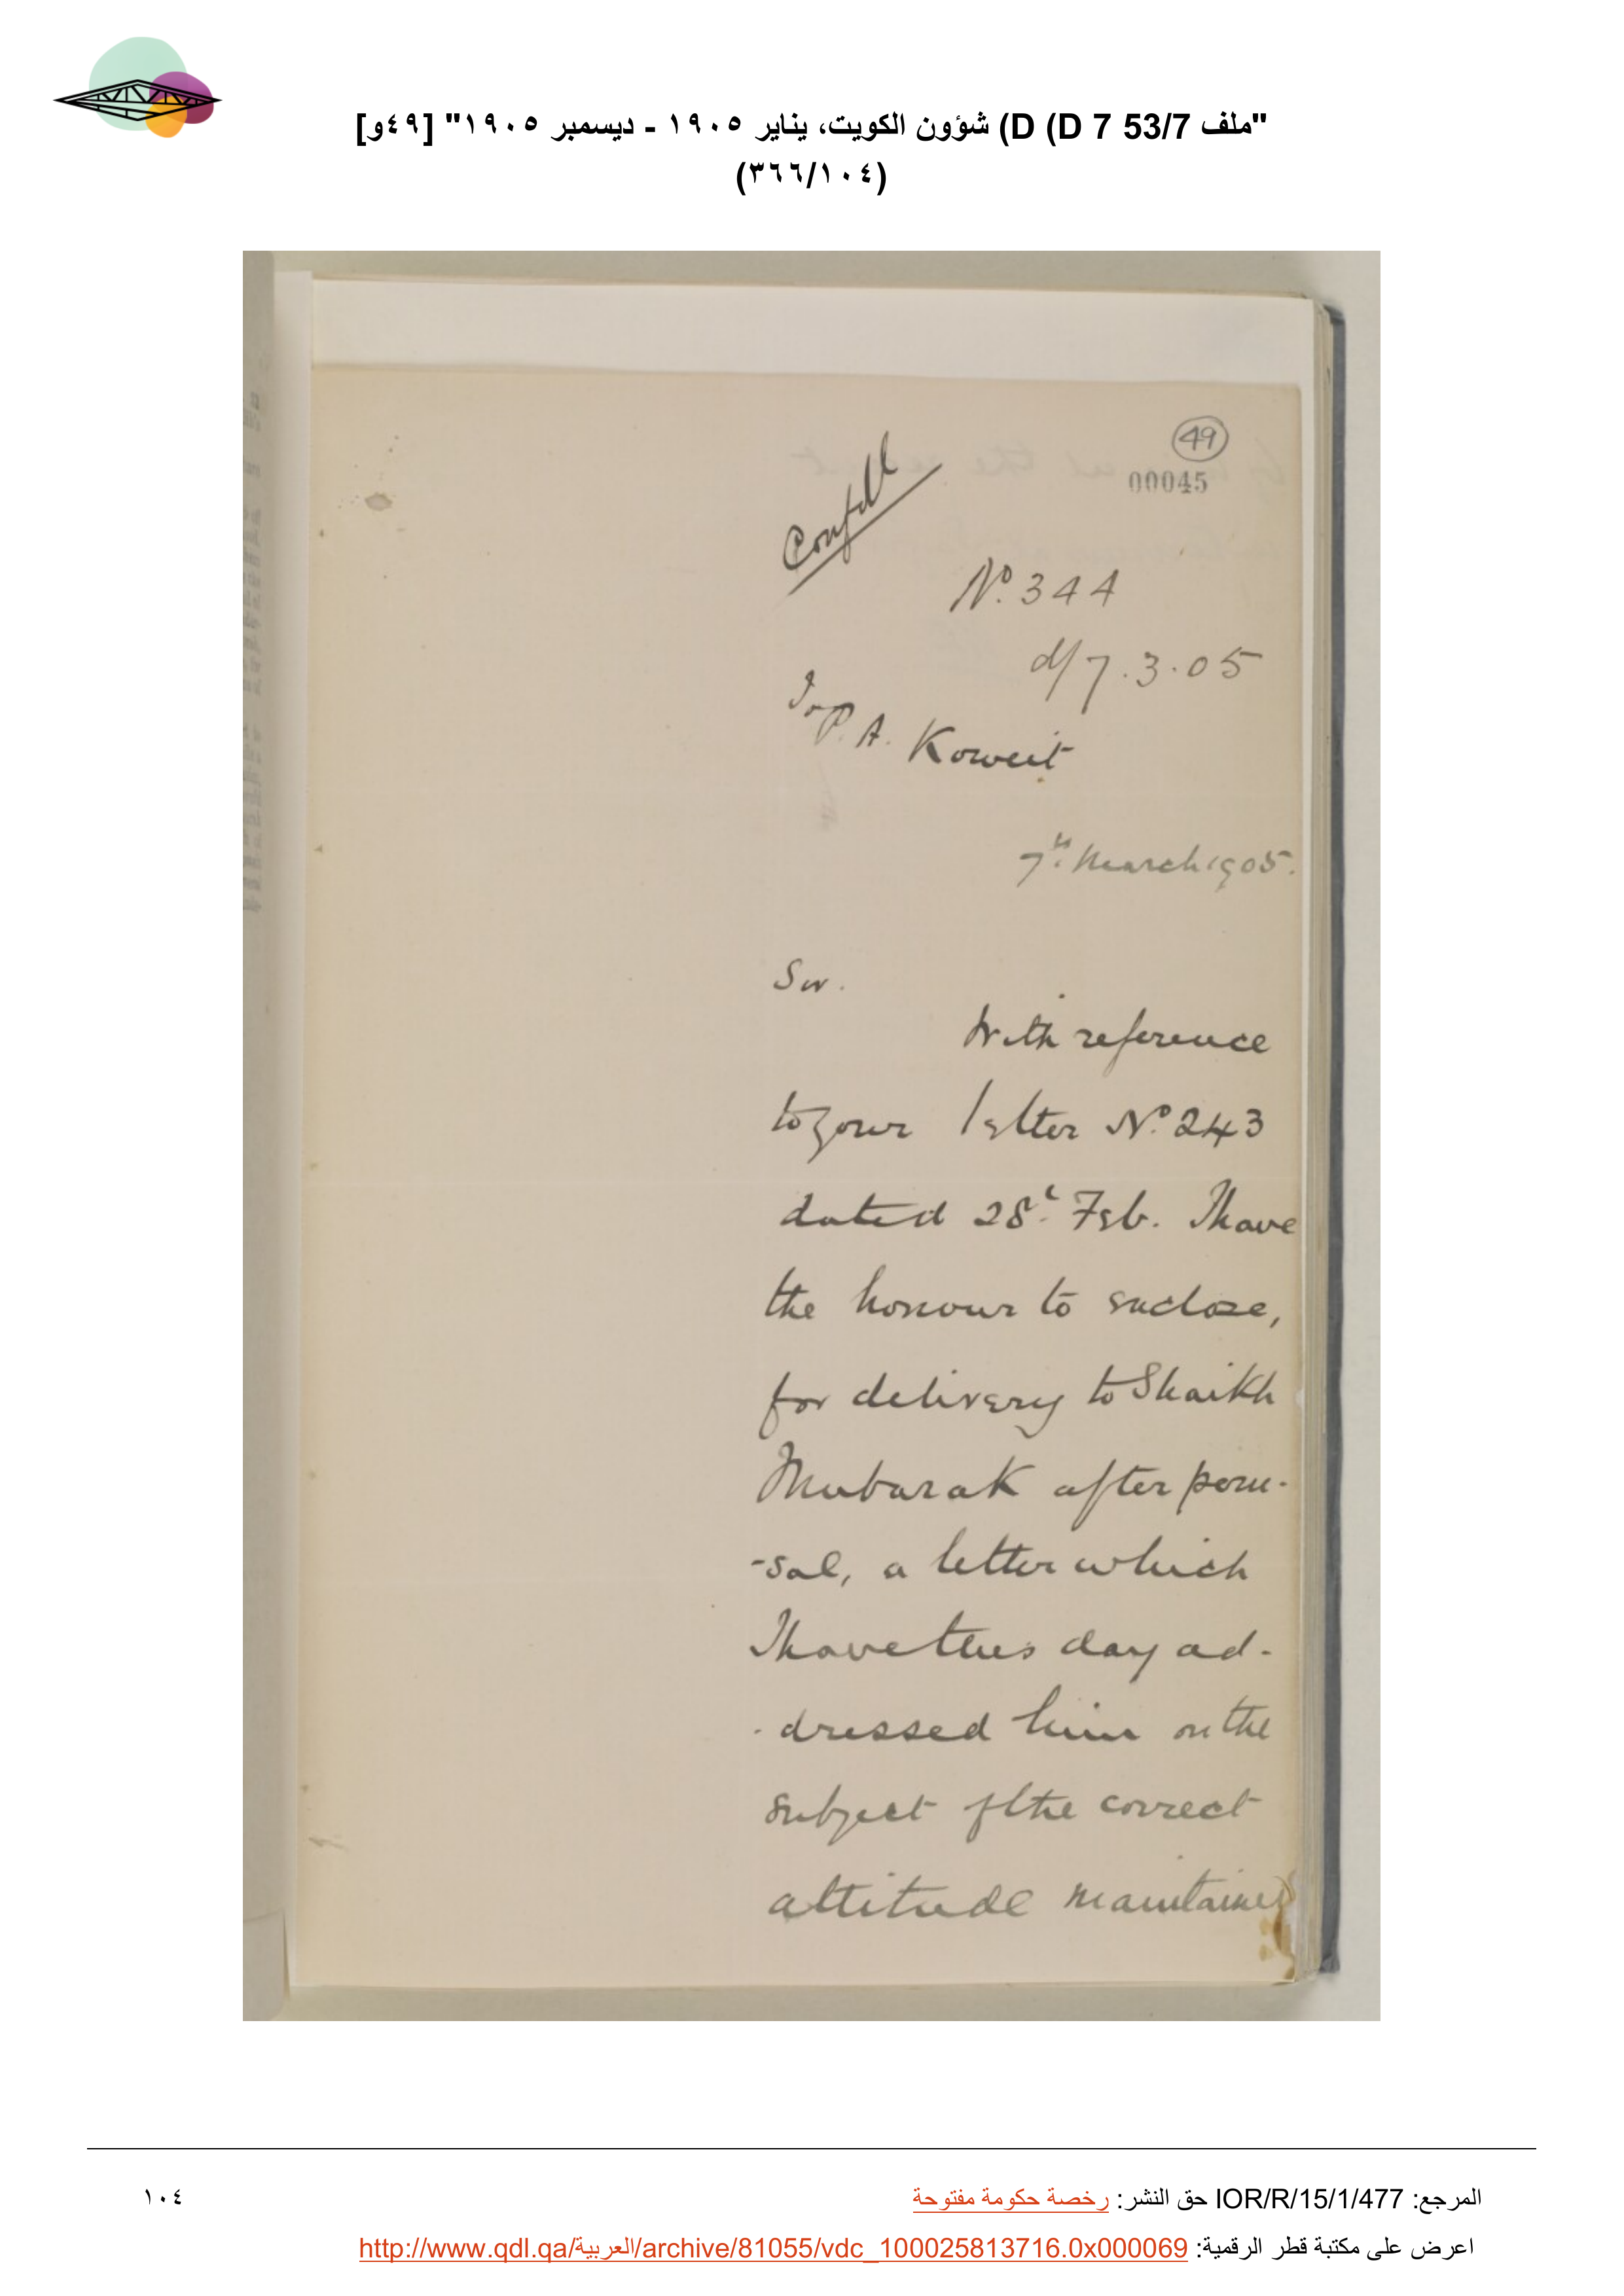 "ملف 53/7 D (D 7) شؤون الكويت، يناير ١٩٠٥ - ديسمبر ١٩٠٥" [٤٩و]
(٣٦٦/١٠٤)
49
00045
Confdl
No. 344
d/7.3.05
To P. A. Koweit
7th March 1905.
Sir.
With reference
to your letter No. 243
dated 28th Feb. I have
the honour to enclose,
for delivery to Shaikh
Mubarak after peru-
-sal, a letter which
I have this day ad-
-dressed him on the
subject of the correct
attitude maintained
المرجع: IOR/R/15/1/477 حق النشر: رخصة حكومة مفتوحة
١٠٤
اعرض على مكتبة قطر الرقمية: http://www.qdl.qa/العربية/archive/81055/vdc_100025813716.0x000069